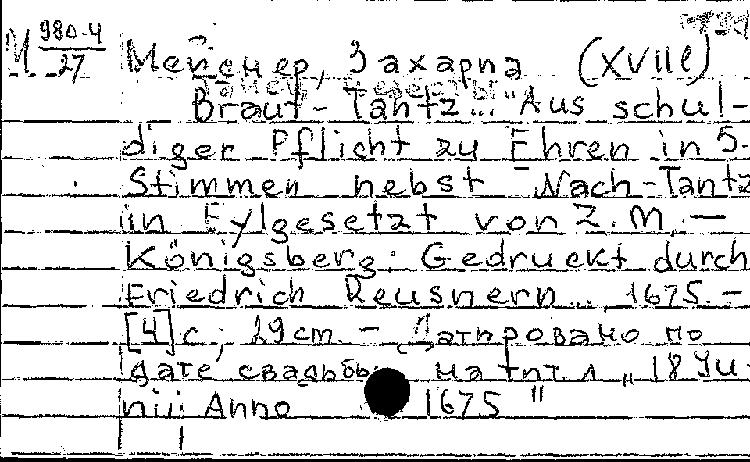 М 980-4/27
Мейснер, Захариа (XVIIe)
Braut-Tantz... "Aus schul-
diger Pflicht zu Ehren in 5.
Stimmen nebst Nach-Tantz
in Eyl gesetzt von Z. M. —
Königsberg: Gedruckt durch
Friedrich Reusnern... 1675. —
[4] с; 29 cm. — Датировано по
дате свадьбы на тит. л. „18 Ju-
nii Anno 1675 "